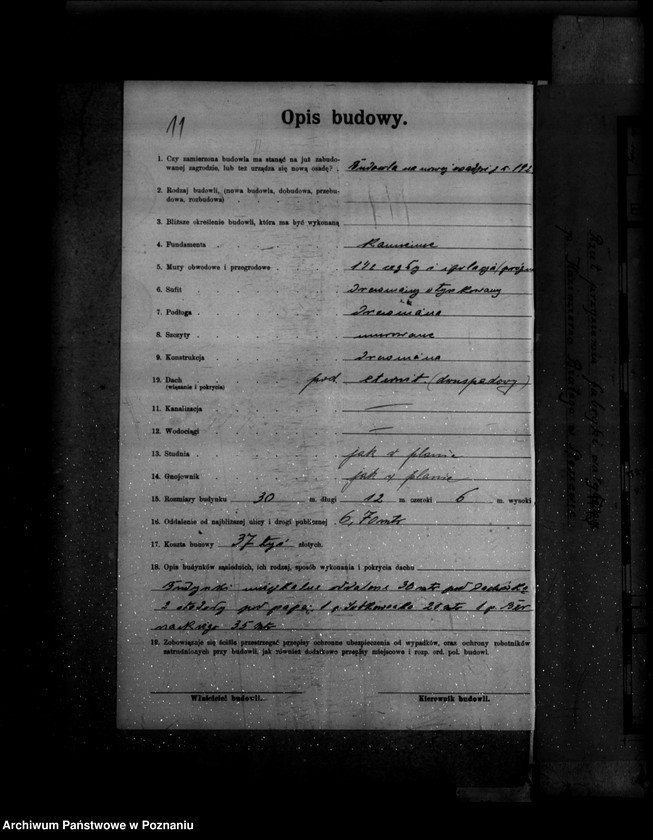 11
Opis budowy.
1. Czy zamierzona budowla ma stanąć na już zabudo-
wanej zagrodzie, lub też urządza się nową osadę? Budowla na nowej
2. Rodzaj budowli, (nowa budowla, dobudowa, przebu-
dowa, rozbudowa)
3. Bliższe określenie budowli, która ma być wykonaną
4. Fundamenta kamienne
5. Mury obwodowe i przegrodowe 1½ cegły z izolacją
6. Sufit drewniany otynkowany
7. Podłoga drewniana
8. Szczyty murowane
9. Konstrukcja drewniana
10. Dach pod eternit (dwuspadowy)
(wiązanie i pokrycia)
11. Kanalizacja —
12. Wodociągi —
13. Studnia jak w planie
14. Gnojownik jak w planie
15. Rozmiary budynku 30 m. długi 12 m. szeroki 6 m. wysoki
16. Oddalenie od najbliższej ulicy i drogi publicznej 6,70 mtr
17. Koszta budowy 37 tyś złotych.
18. Opis budynków sąsiednich, ich rodzaj, sposób wykonania i pokrycia dachu
Budynki oddalone 30 mtr pod dachówką
2 stodoły pod papą, 1 p. 20 mtr 1 p.
35 mtr
19. Zobowiązuje się ściśle przestrzegać przepisy ochronne ubezpieczenia od wypadków, oraz ochrony robotników
zatrudnionych przy budowli, jak również dodatkowe przepisy miejscowe i rozp. ord. pol. budowl.
Właściciel budowli. Kierownik budowli.
Archiwum Państwowe w Poznaniu